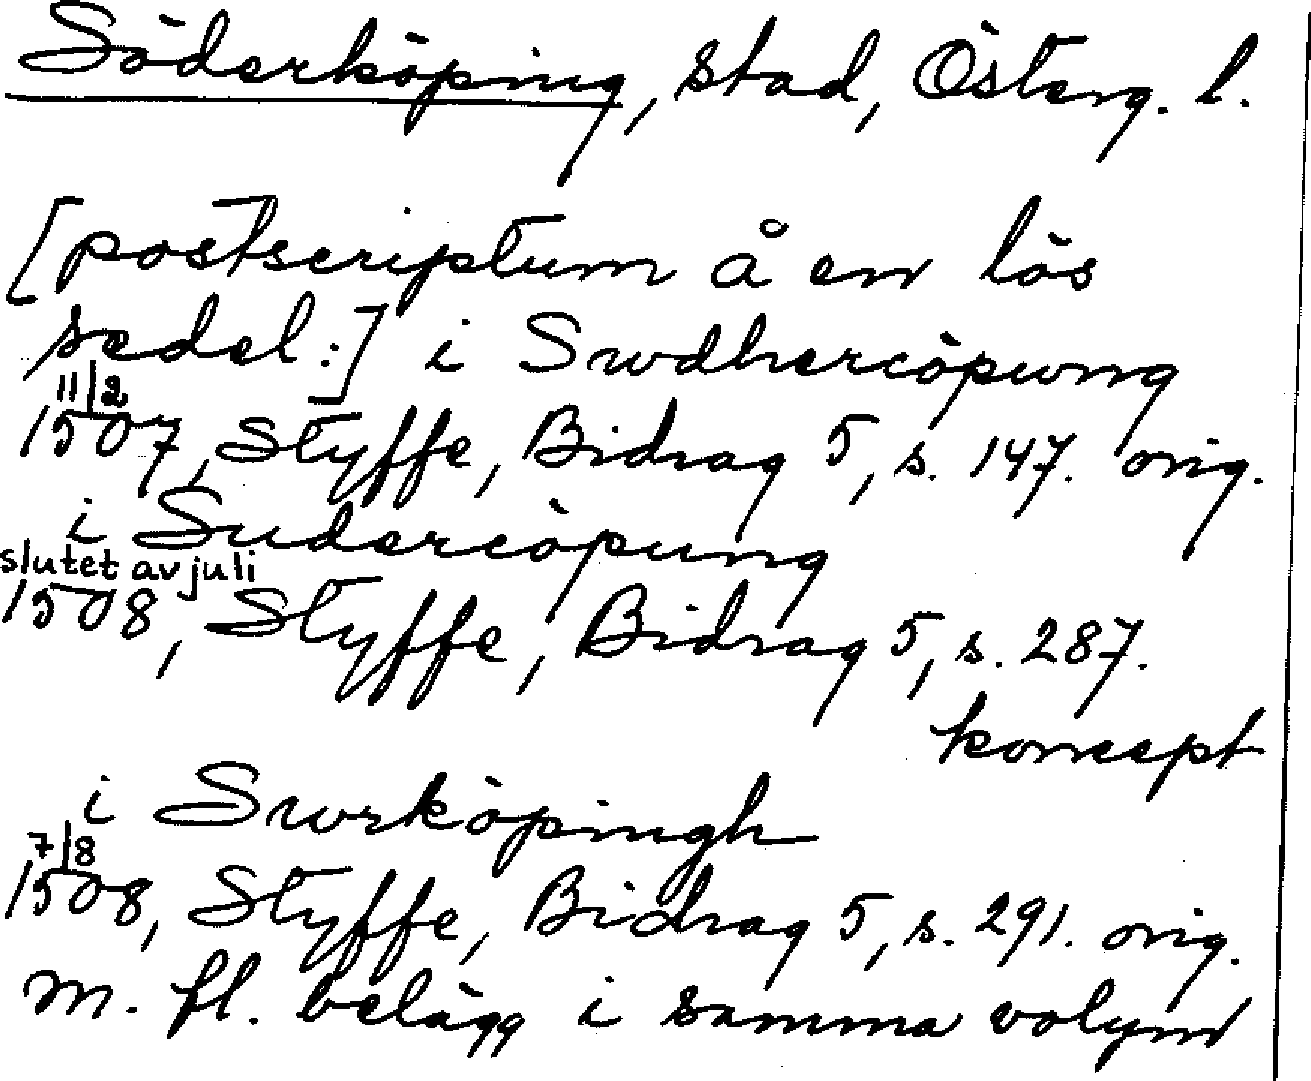 Söderköping, stad, Österg. l.
[postscriptum å en lös
sedel:] i Swdhercöpung
11/2
1507, Styffe, Bidrag 5, s. 147. orig.
i Sudercöpung
slutet av juli
1508, Styffe, Bidrag 5, s. 287.
koncept
i Swrköpingh
7/8
1508, Styffe, Bidrag 5, s. 291. orig.
m. fl. belägg i samma volym